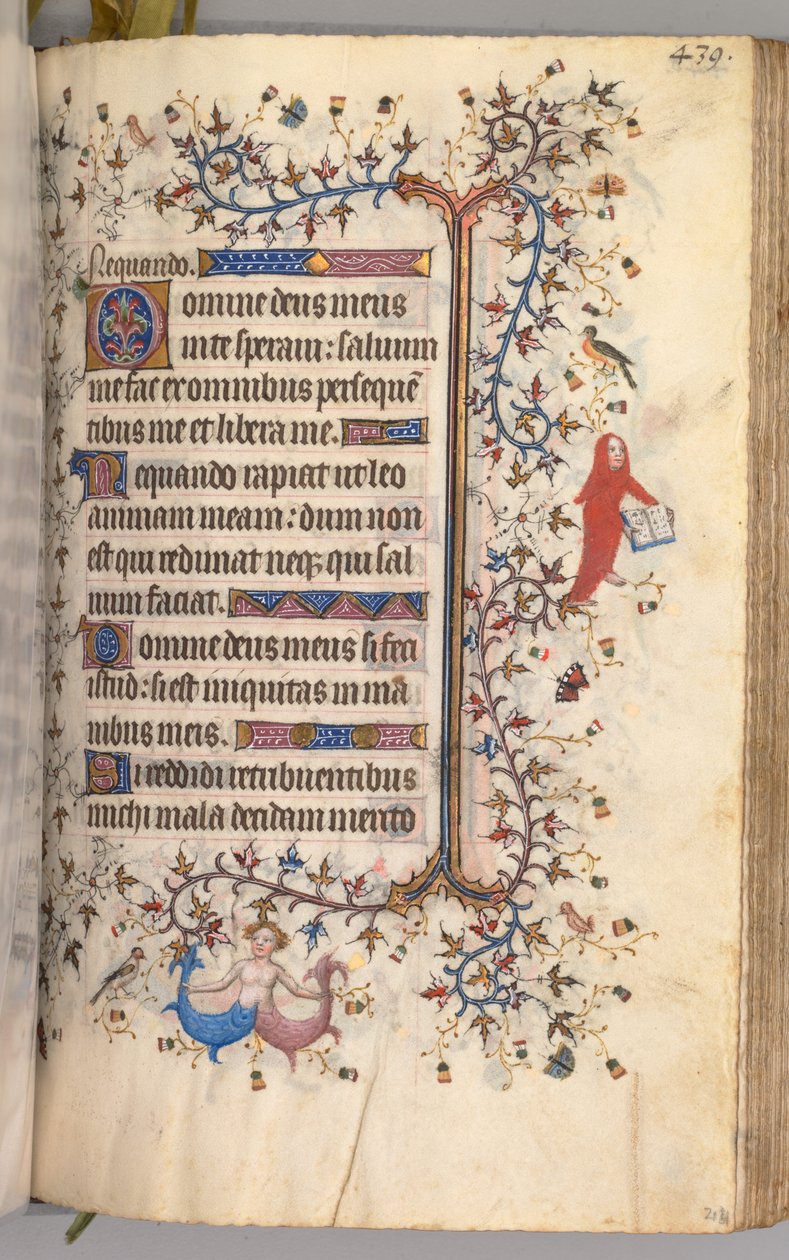 439.
Nequando.
Domine deus meus
in te speravi: saluum
me fac ex omnibus persequē
tibus me et libera me.
Nequando rapiat ut leo
animam meam: dum non
est qui redimat neq; qui sal
uum faciat.
Domine deus meus si feci
istud: si est iniquitas in ma
nibus meis.
Si reddidi retribuentibus
michi mala decidam merito